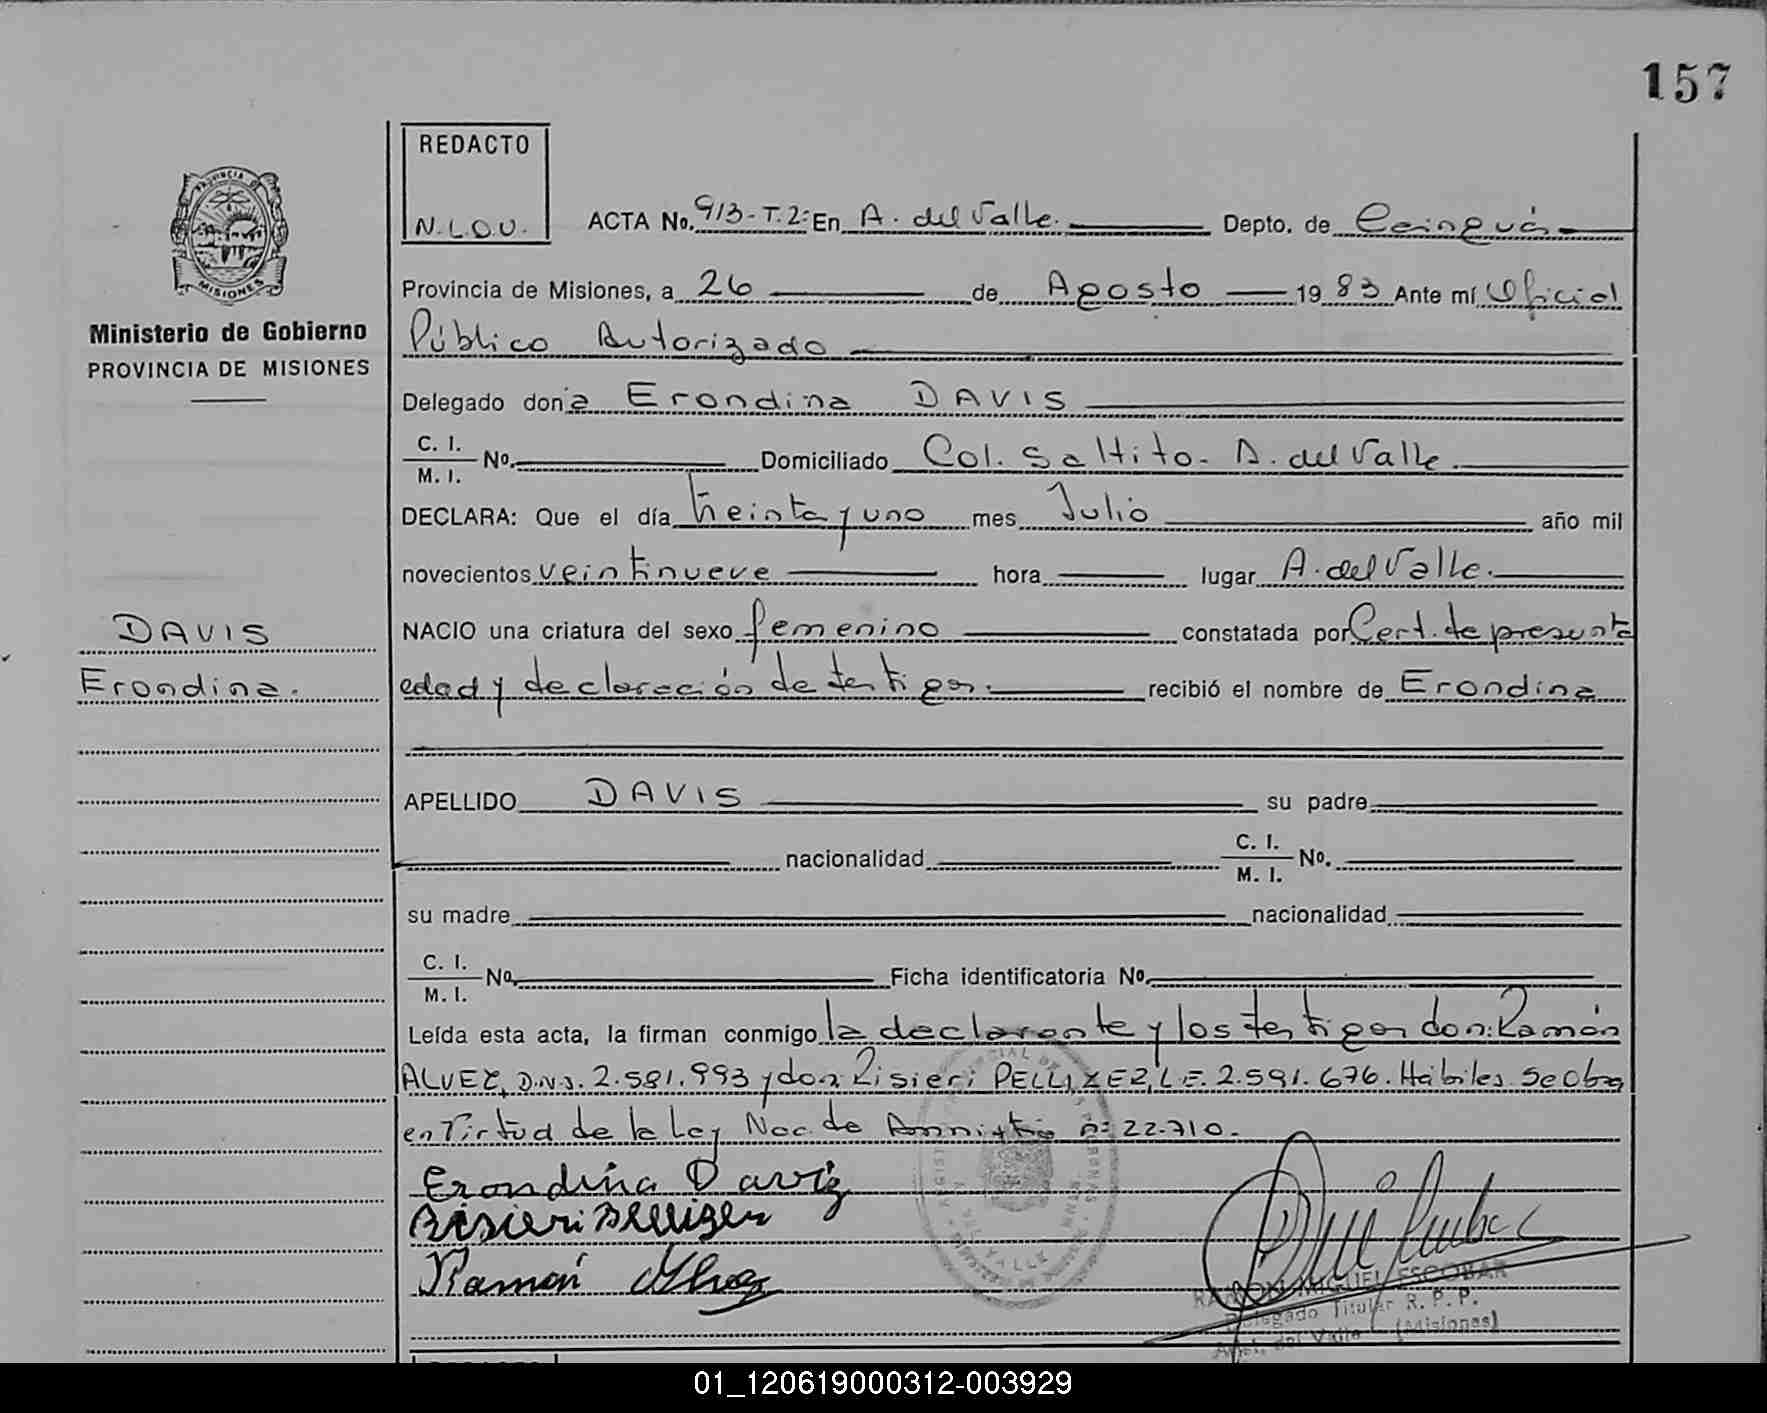 157
REDACTO
N.L.D.U.
ACTA No. 913-T.2: En A. del Valle. Depto. de Cainguás
PROVINCIA DE
MISIONES
Provincia de Misiones, a 26 de Agosto 1983 Ante mí Oficial
Ministerio de Gobierno
PROVINCIA DE MISIONES
Público Autorizado
Delegado donña Erondina DAVIS
C. I.
M. I. No. Domiciliado Col. Saltito. A. del Valle.
DECLARA: Que el día treinta y uno mes Julio año mil
novecientos veintinueve hora lugar A. del Valle.
DAVIS
Erondina.
NACIO una criatura del sexo femenino constatada por Cert. de presunta
edad y declaración de testigos. recibió el nombre de Erondina
APELLIDO DAVIS su padre
nacionalidad C. I.
M. I. No.
su madre nacionalidad
C. I.
M. I. No. Ficha identificatoria No.
Leída esta acta, la firman conmigo la declarante y los testigos don: Ramón
ALVEZ, D.N.I. 2.581.993 y don Risieri PELLIZEZ, L.E. 2.591.676. Hábiles. Se Obra
en Virtud de la Ley Nac. de Amnistía nº 22.710.
Erondina Daviz
Risieri
Ramón Alvez
RAMON MIGUEL ESCOBAR
Delegado Titular R. P. P.
Arist. del Valle (Misiones)
01_120619000312-003929